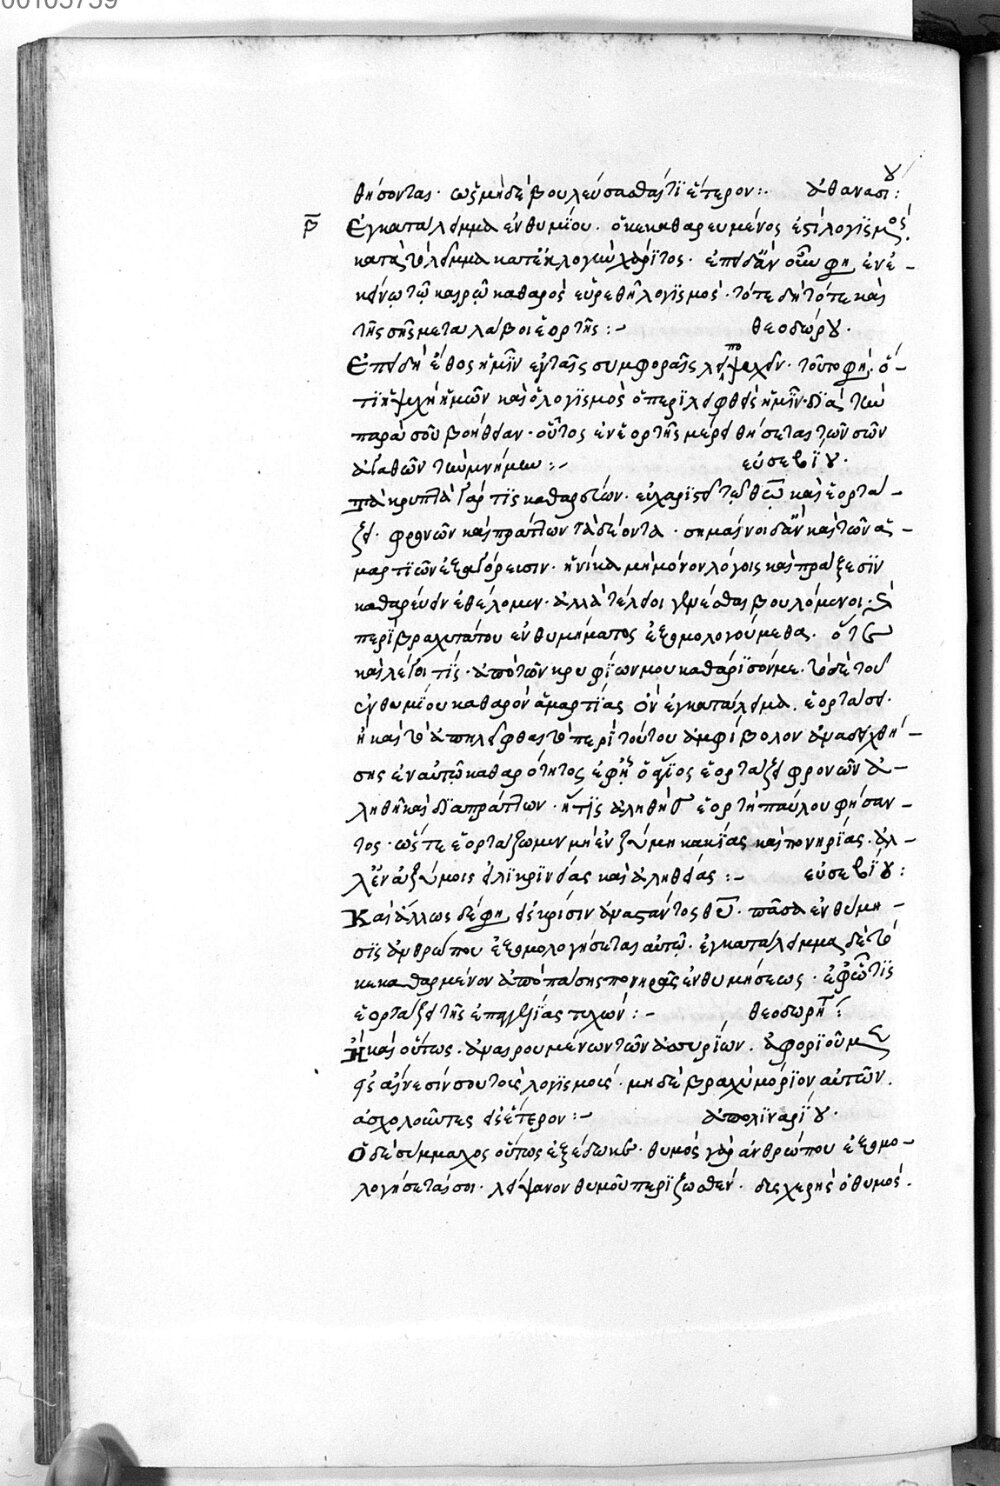 00103739
θήσονται. ὡς μηδὲ βουλεύσασθαί τι ἕτερον:. ἀθανασίου:
β Ἐγκατάλειμμα ἐνθυμίου. ὁ κεκαθαρευμένος ἐστὶ λογισμός.
κατὰ τὸ λεῖμμα κατ' ἐκλογὴν χάριτος. ἐπειδὰν οὖν φη ἐν ἐ-
κείνω τῶ καιρῶ καθαρὸς εὑρεθῆ λογισμός. τότε δὴ τότε καὶ
τῆς σῆς μεταλάβοι ἑορτῆς:- θεοδώρου.
Ἐπειδὴ ἔθος ἡμῖν ἐν ταῖς συμφοραῖς λειποψυχεῖν. τοῦτο φη. ὅ-
τι ἡ ψυχὴ ἡμῶν καὶ ὁ λογισμὸς ὁ περιλειφθεὶς ἡμῖν διὰ τὴν
παρὰ σοῦ βοήθειαν. οὗτος ἐν ἑορτῆς μέρει θήσεται τῶν σῶν
ἀγαθῶν τὴν μνήμην:- εὐσεβίου.
τὰ κρυπτὰ γάρ τις καθαρθεὶς ὢν. εὐχαριστεῖ τῶ θεῶ καὶ ἑορτά-
ζει. φρονῶν καὶ πράττων τὰ δέοντα. σημαίνοι δ' ἂν καὶ τῶν ἁ-
μαρτιῶν ἐξαγόρευσιν. ἡνίκα μὴ μόνον λόγοις καὶ πράξεσιν
καθαρεύειν ἐθέλομεν. ἀλλὰ τέλειοι γενέσθαι βουλόμενοι. καὶ
περὶ βραχυτάτου ἐνθυμήματος ἐξομολογούμεθα. ὅτε
καὶ λέγοι τίς. ἀπὸ τῶν κρυφίων μου καθάρισόν με. τὸ δὲ τοῦ
ἐνθυμίου καθαρὸν ἁμαρτίας ὂν ἐγκατάλειμα. ἑορτάσει.
ἢ καὶ τὸ ἀπολειφθὲν τὸ περὶ τούτου ἀμφίβολον ἀναδειχθεί-
σης ἐν αὐτῶ καθαρότητος ἐφ' ἧ ὁ ἅγιος ἑορτάζει φρονῶν ἀ-
ληθῆ καὶ διαπράττων. ἥτις ἀληθής ἑορτὴ παύλου φήσαν-
τος. ὥστε ἑορτάζωμεν μὴ ἐν ζύμη κακίας καὶ πονηρίας. ἀλ-
λ' ἐν ἀζύμοις εἰλικρινείας καὶ ἀληθείας:- εὐσεβίου:
Καὶ ἄλλως δέ φη εἰς κρίσιν ἀναστάντος θεοῦ. πᾶσα ἐνθύμη-
σις ἀνθρώπου ἐξομολογήσεται αὐτῶ. ἐγκατάλειμμα δὲ τὸ
κεκαθαρμένον ἀπὸ πάσης πονηρᾶς ἐνθυμήσεως. ἐφ' ὧ τις
ἑορτάζει τῆς ἐπαγγελίας τυχών:- θεοδωρήτου:
Ἢ καὶ οὕτως. ἀναιρουμένων τῶν ἀσσυρίων. ἀφοριοῦμεν
εἰς αἴνεσίν σου τοὺς λογισμούς. μηδὲ βραχὺ μόριον αὐτῶν.
ἀσχολοῦντες εἰς ἕτερον:- ἀπολιναρίου.
Ὁ δὲ σύμμαχος οὕτως ἐξέδωκεν. θυμὸς γὰρ ἀνθρώπου ἐξομο-
λογήσεταί σοι. λείψανον θυμοῦ περιζώσθεν. δυσχερὴς ὁ θυμός.